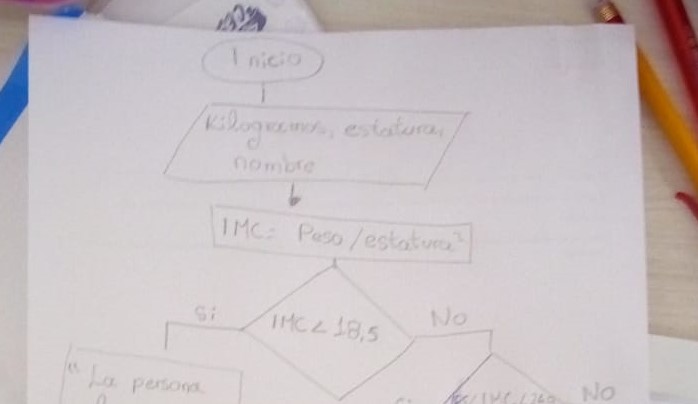 Inicio
Kilogramos, estatura,
nombre
IMC= Peso/estatura²
Si
IMC < 18,5
No
"La persona
No